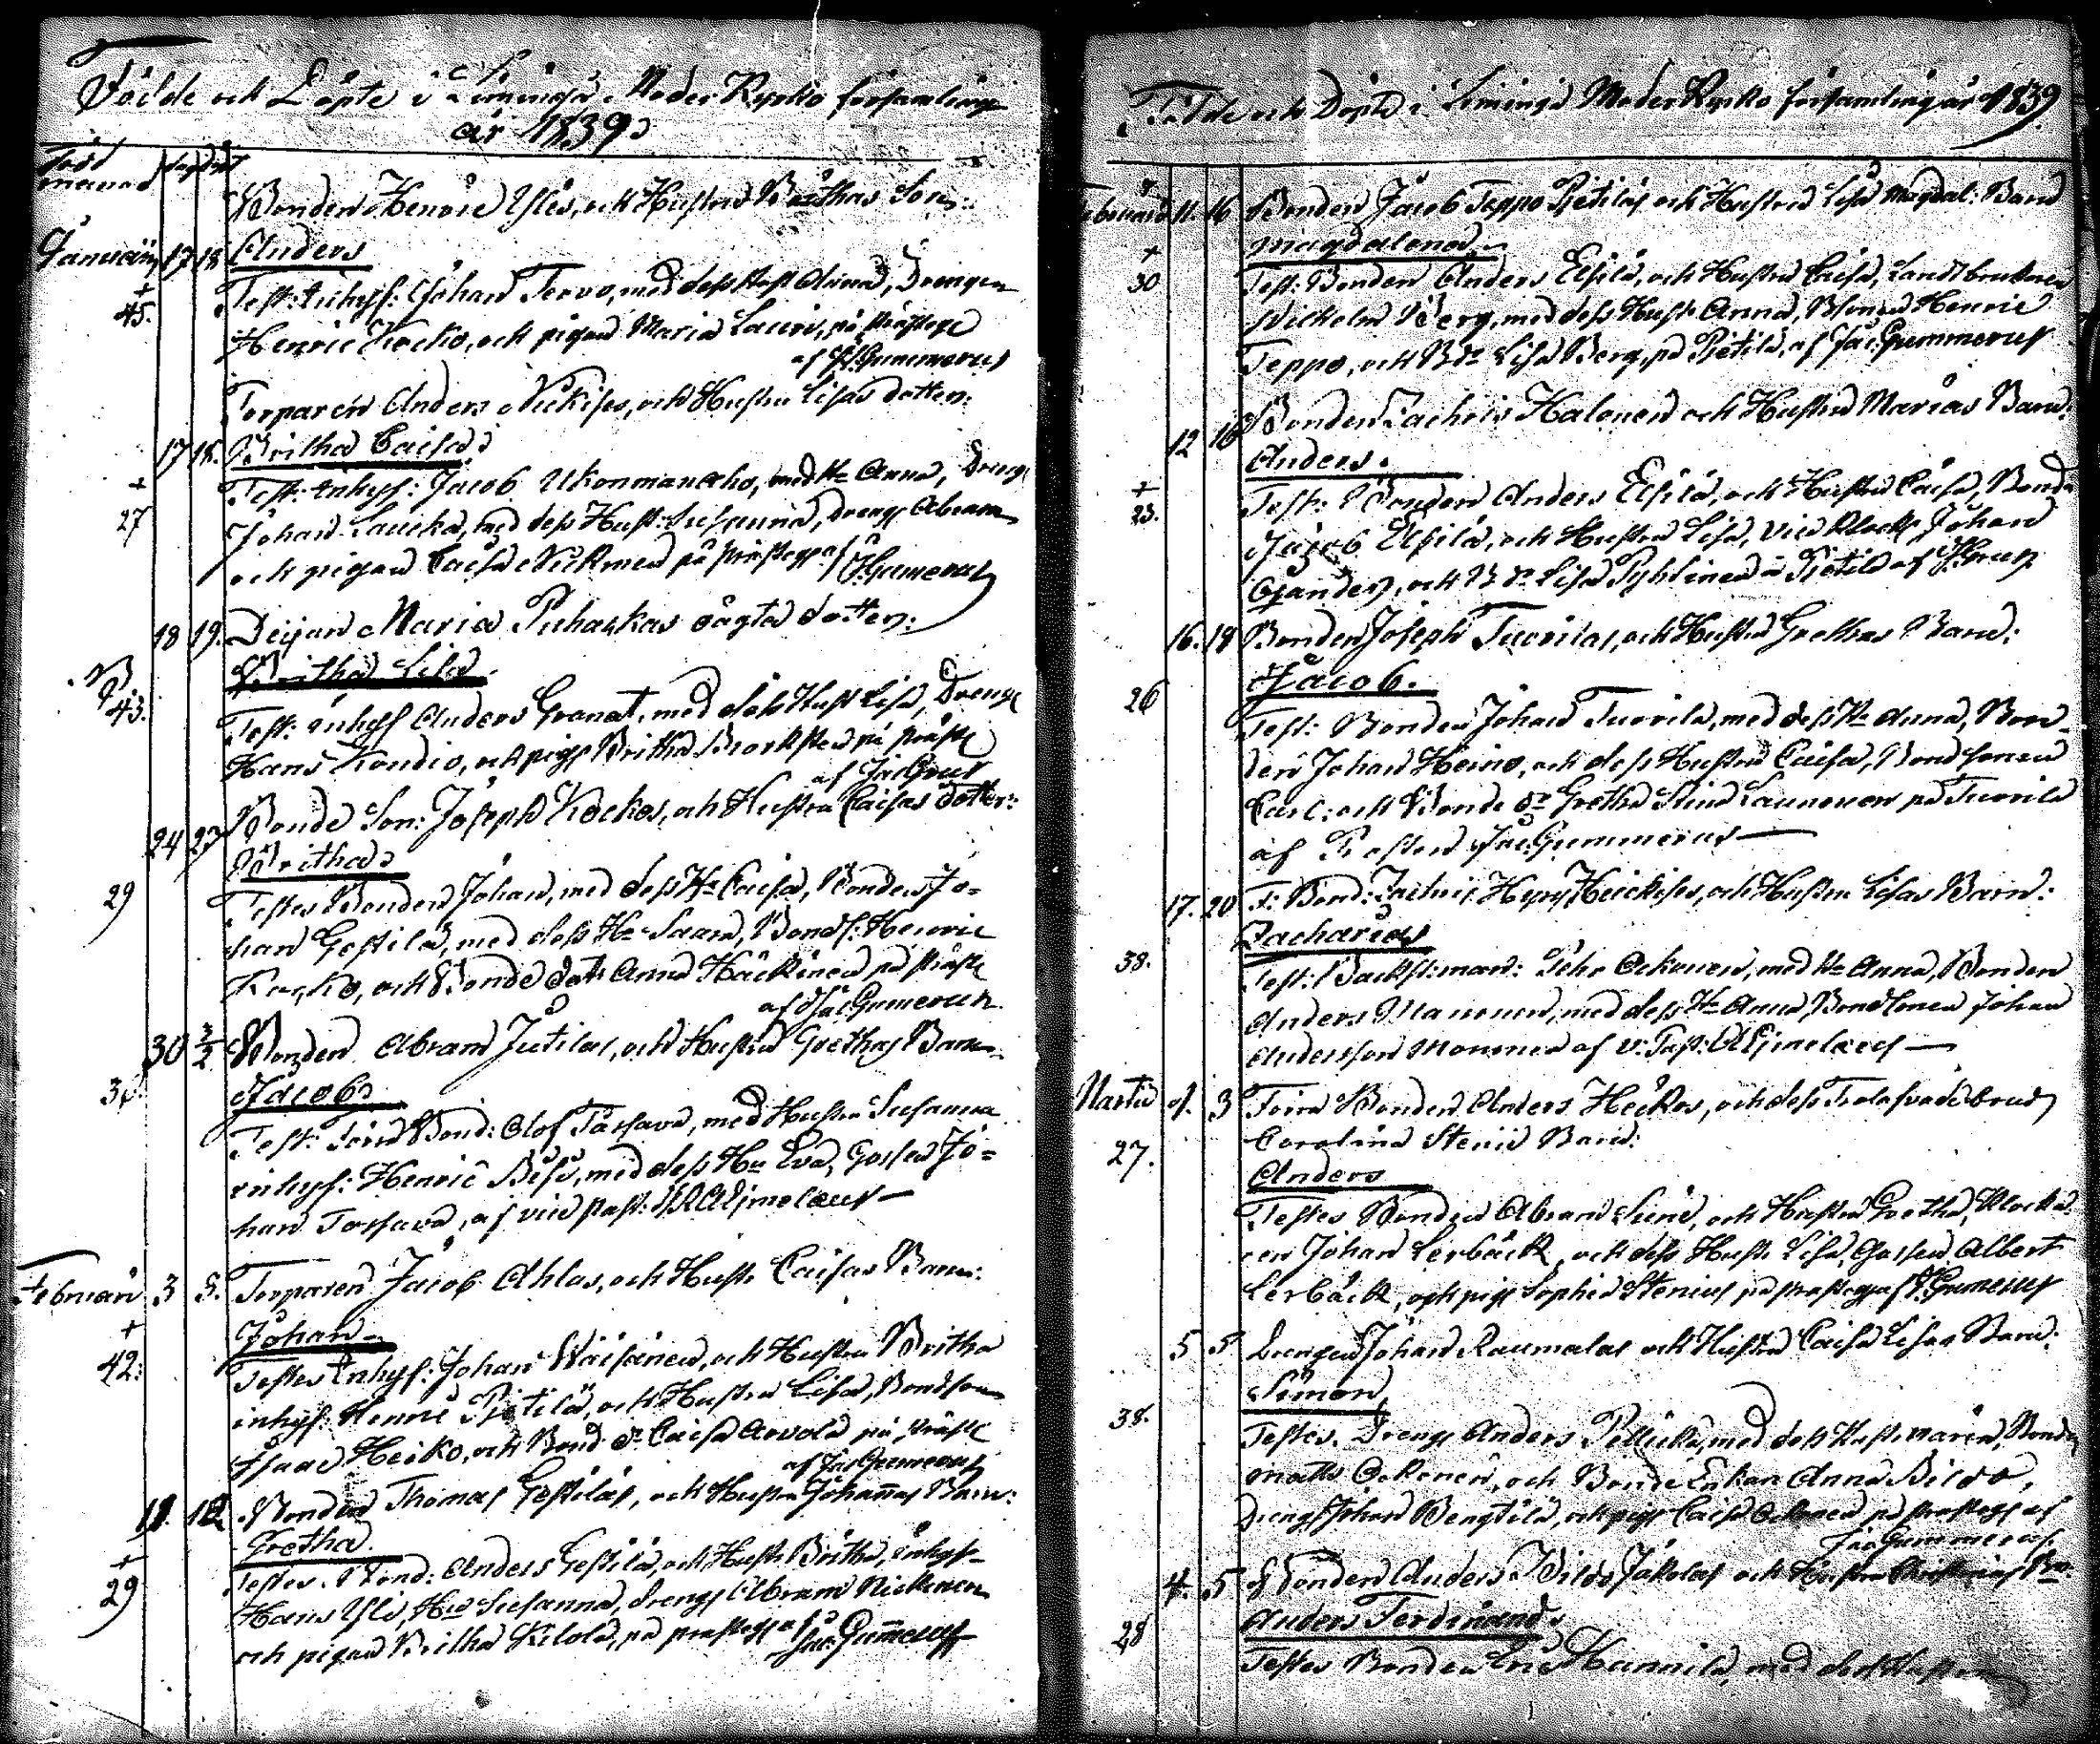 Födde och Döpte i Limingå Moder Kyrko församling
år 1839
Född månad
Bonden Henric Ylis, och Hustrus Brithas Son:
Januarii 17 18 Anders
+ Test: Inhys: Johan Tervo, med dess Hust Anna, Drengen
45. Henric Kocko, och pigan Maria Lauri, på prästeg
af J. Gummerus
Torparen Anders Nikises, och Hustru Lisas dotter:
17 18. Britha Caisa
+ Test: Inhys: Jacob Ukonmanaho, med Hu Anna, Dreng
27 Johan Laucka, med dess Hust: Susanna, Dreng Abram
och pigan Caisa Nickinen på prästeg af J. Gumerus
18 19. Deijan Maria Puhackas oägta dotter:
Britha Lisa
43. Test: inhys Anders Granat, med dess Hust Lisa, Dreng
Hans Kondio, och pig Britha Biorksten på präste
af Jac Grus
Bonde Son: Joseph Kockos, och Hustru Caisas dotter:
24 27 Britha
29 Testes Bonden Johan, med dess Hu Caisa, Bonden Jo=
han Gestilä, med dess Hu Saara, Bonds: Henric
Kocko, och Bonde dot: Anna Häckinen på präste
af Jac Gumerus
30 3/2 Bonden Abram Jutilas, och Hustru Grethas Barn
Jacob
Test: Förra Bond: Olof Tassava, med Hustru Susanna
inhys: Henric Sipo, med dess Hu Eva, Gossen Jo=
han Tassava, af vice past: Alimelæus
Februari 3 5. Torparen Jacob Ahlas, och Hust: Caisas Barn:
+ Johan
42: Testes Inhys: Johan Wäisänen, och Hustru Britha
inhys: Henric Pietilä, och Hustru Lisa, Bondson
Isaac Heiko, och Bond dr Caisa Arvola på präste
af Jac Gumerus
11. 12 Bonden Thomas Gestiläs, och Hustru Johannas Barn:
+ Gretha.
29 Testes. Bond: Anders Gestilä, och Hust: Britha, inhys
Hans Yli, Hu Susanna, dreng Abram Nickinen
och pigan Britha Kilola, på prästeg af Jac: Gummerus
Födde och Döpte i Limingå Moder Kyrko församling år 1839
Februarii 11. 16 Bonden Jacob Teppo Pietiläs och Hustrus Lisa Magdal: Barn
+ Magdalena
30 Test: Bonden Anders Elsilä, och Hustru Caisa, Landtbrukaren
Wilhelm Berg, med dess Hust: Anna, Bsonen Henric
Teppo, och B dr Lisa Berg, på Pietilä, af Jac: Gummerus
12 16 Bonden Zachris Halonen och Hustru Marias Barn:
Anders.
+ Test: Bonden Anders Elsilä, och Hustru Caisa, Bonden
23. Jacob Elsilä, och Hustru Lisa, vice Klock: Johan
och B dr Lisa Pyhtinen i Pietilä af J. Grus
16. 18 Bonden Joseph Tuorilas, och Hustru Grethas Barn:
Jacob.
26 Test: Bonden Johan Tuorila, med dess Hu Anna, Bon=
den Johan Heino, och dess Hustru Caisa, Bondsonen
Carl: och Bonde dr Gretha Stina Launonen på Tuorila
af Prosten Jac: Gummerus
17. 20 F: Bond: Zachris Hyry Heickises, och Hustru Lisas Barn:
Zacharias
38. Test: Backst:man: Pehr Ockonen, med Hu Anna, Bonden
Anders Manninen, med dess Hu Anna, Bondsonen Johan
Andersson Monninen af v: Past: Alimelæus
Martii 1. 3 Förra Bonden Anders Heckos, och dess Trolofvade brud
27. Carolina Stenii Barn:
Anders
Testes Bonden Abram Suni, och Hustru Gretha, Klocka=
ren Johan Lerbäck, och dess Hust: Lisa, Gossen Albert
Lerbäck, och pig Sophia Stenius på prästeg af J. Gumerus
5 5 Drengen Johan Raumalas och Hustru Caisa Lisas Barn:
Simon
38. Testes. Dreng Anders Pellicka, med dess Hust: Maria, Bond
Matts Ockonen, och Bonde Enkan Anna Bildo,
Dreng Johan Bengtilä, och pig Caisa Ockonen på prästeg af
Jac Gummerus.
4. 5 Bonden Anders Bildo Jakolas och Hustru Christinas Bn
Anders Ferdinand
28 Testes Bonden Eric Hannila, med dess Hustru